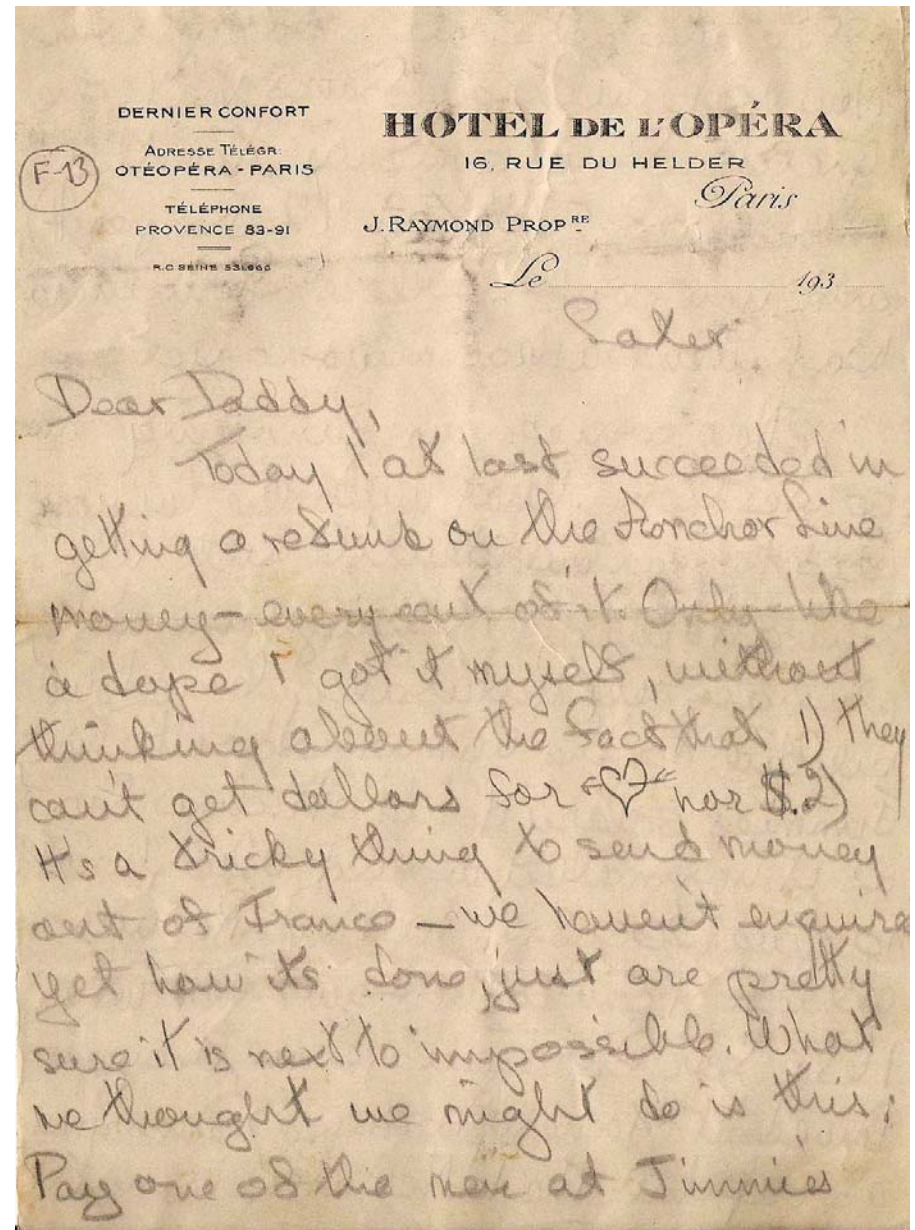 DERNIER CONFORT
ADRESSE TÉLÉGR:
OTÉOPÉRA - PARIS
TÉLÉPHONE
PROVENCE 83-91
R.C SEINE 531.666
F-13
HOTEL DE L'OPÉRA
16, RUE DU HELDER
Paris
J. RAYMOND PROPRE
Le 193
Later
Dear Daddy,
Today I at last succeeded in
getting a refund on the Anchor Line
money - every cent of it. Only like
a dope I got it myself, without
thinking about the fact that 1) they
can't get dollars for nor $. 2)
It's a tricky thing to send money
out of France - we haven't enquire
yet how its done, just are pretty
sure it is next to impossible. What
we thought we might do is this:
Pay one of the men at Jimmies